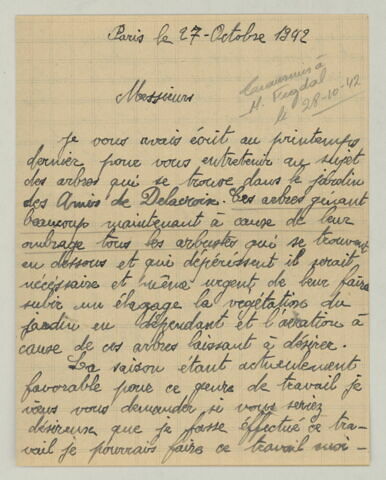 Paris le 27-Octobre 1942
Transmis à
M. Pregdal
le 28-10-42
Messieurs
Je vous avais écrit au printemps
dernier pour vous entretenir au sujet
des arbres qui se trouve dans le jardin
des Amis de Delacroix. Ces arbres gênant
beaucoup maintenant à cause de leur
ombrage tous les arbustes qui se trouvent
en dessous et qui dépérissent il serait
nécessaire et même urgent de leur faire
subir un élagage la vegétation du
jardin en dépendant et l'aération à
cause de ces arbres laissant à désirer.
La saison étant actuellement
favorable pour ce genre de travail je
viens vous demander si vous seriez
désireux que je fasse effectué ce tra-
vail je pourrais faire ce travail moi-